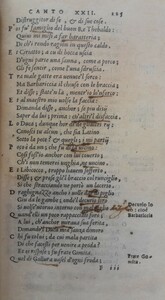 CANTO XXII.
Distruggitor di se, & di sue cose.
Po su' famiglio del buon Re Thebaldo:
Quiui mi misi a far baratteria
Di ch'i rendo ragion in questo caldo.
E Ciriatto; a cui di bocca uscia
D'ogni parte una sanna, come a porco,
Gli fe sentir come l'una sdruscia.
Tra male gatte era uenuto il sorco;
Ma Barbariccia il chiuse con le braccia,
Et disse; state'n la, mentr'io lo'nforco:
Et al maestro mio uolse la faccia:
Domanda disse, anchor; se piu disii
Saper da lui; prima ch'altri'l disfaccia.
Lo Duca; dunque hor di de gli altri rii:
Conosci tu alcun, che sia Latino
Sotto la pece? & quegli; i mi
Poco è da un, che fu di la uicino:
Così foss'io anchor con lui coperto;
Ch'i non temerei unghia, ne uncino.
E Libicocco; troppo hauem sofferto,
Disse; & presegli'l braccio col runciglio
Si che stracciando ne porto un lacerto.
anch'ei uolle dar di piglio
Giu dalle gambe; onde'l decurio loro
Si uolse'ntorno intorno con mal piglio.
Decurio lo
ro:
Barbariccia
Quand'elli un poco rappaciati foro;
A lui, ch'anchor miraua sua ferita,
Domando'l Duca mio sanza dimoro;
Chi fu colui, da cui mala partita
Di che facesti per uenir a proda?
Et ei rispose; fu frate Gomita,
Frate Gomita
Quel di Gallura, uasel d'ogni froda;